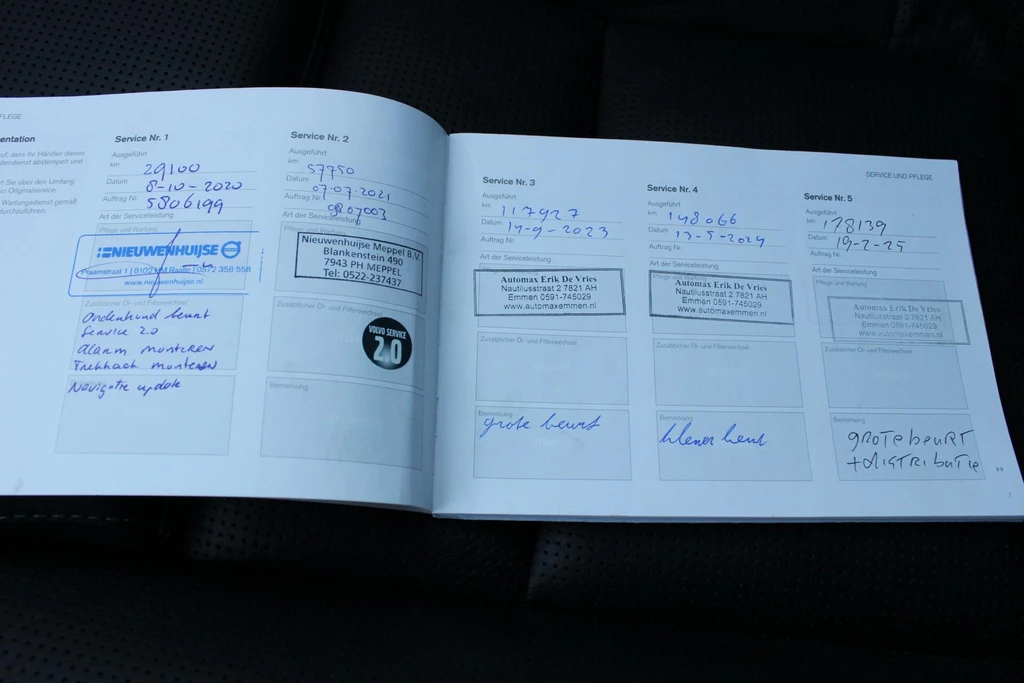 FLEGE
entation
uf, dass Ihr Händler dieses
dendienst abstempelt und
rt Sie über den Umfang
o Originalservice.
Wartungsdienst gemäß
durchzuführen.
Service Nr. 1
Ausgeführt
km 29100
Datum 8-10-2020
Auftrag Nr. 5806199
Art der Serviceleistung
Pflege und Wartung
NIEUWENHUIJSE
Praamstraat 1 | 8102 HM Raalte | 0572 358 558
www.nieuwenhuijse.nl
Zusätzlicher Öl- und Filterwechsel
Onderhoud beurt
Service 2.0
alarm monteren
Trekhaak monteren
Navigatie update
Service Nr. 2
Ausgeführt
km 57750
Datum 07-07-2021
Auftrag Nr. 9807003
Art der Serviceleistung
Nieuwenhuijse Meppel B.V.
Blankenstein 490
7943 PH MEPPEL
Tel: 0522-237437
Zusätzlicher Öl- und Filterwechsel
VOLVO SERVICE
2.0
Bemerkung
SERVICE UND PFLEGE
Service Nr. 3
Ausgeführt
km 117927
Datum 14-9-2023
Auftrag Nr.
Art der Serviceleistung
Automax Erik De Vries
Nautilusstraat 2 7821 AH
Emmen 0591-745029
www.automaxemmen.nl
Zusätzlicher Öl- und Filterwechsel
Bemerkung
grote beurt
Service Nr. 4
Ausgeführt
km 148066
Datum 13-5-2024
Auftrag Nr.
Art der Serviceleistung
Pflege und Wartung
Automax Erik De Vries
Nautilusstraat 2 7821 AH
Emmen 0591-745029
www.automaxemmen.nl
Zusätzlicher Öl- und Filterwechsel
Bemerkung
kleine beurt
Service Nr. 5
Ausgeführt
km 178139
Datum 19-2-25
Auftrag Nr.
Art der Serviceleistung
Pflege und Wartung
Automax Erik De Vries
Nautilusstraat 2 7821 AH
Emmen 0591-745029
www.automaxemmen.nl
Zusätzlicher Öl- und Filterwechsel
Bemerkung
GROTE BEURT
+ DISTRIBUTIE
»
7